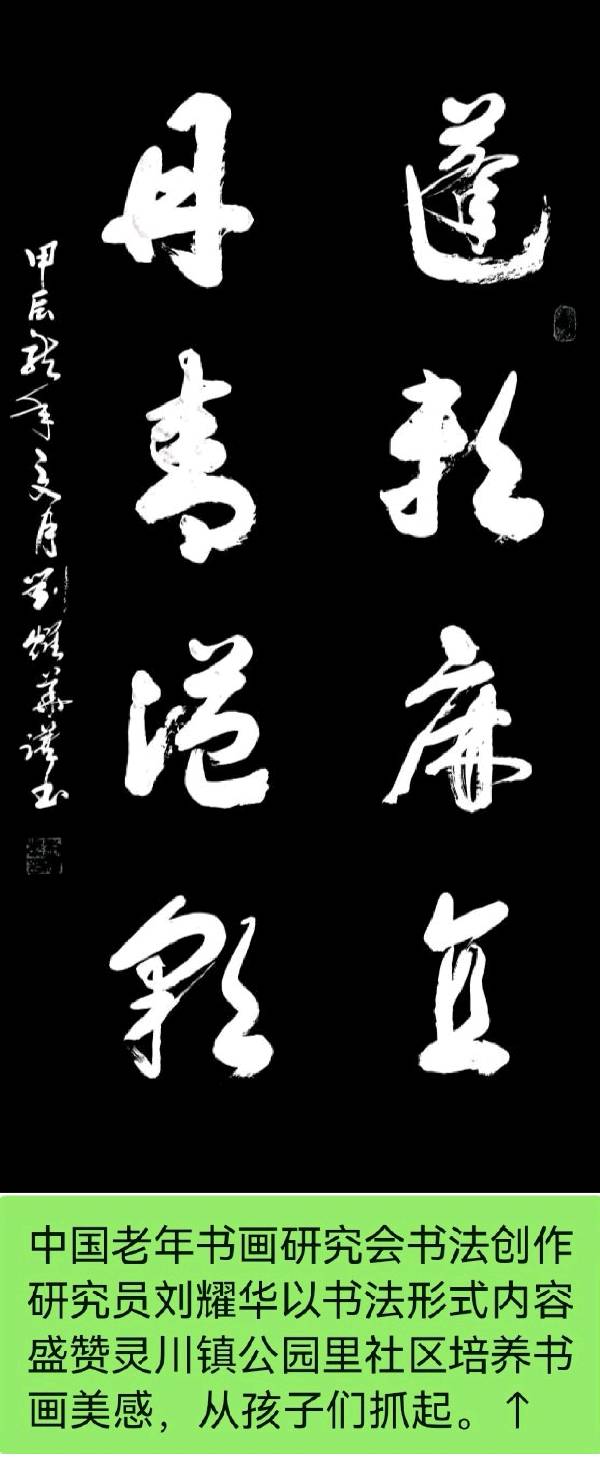 蓬赖麻直
丹青溢彩
甲辰龙年夏月劉耀華谨书
中国老年书画研究会书法创作
研究员刘耀华以书法形式内容
盛赞灵川镇公园里社区培养书
画美感，从孩子们抓起。↑